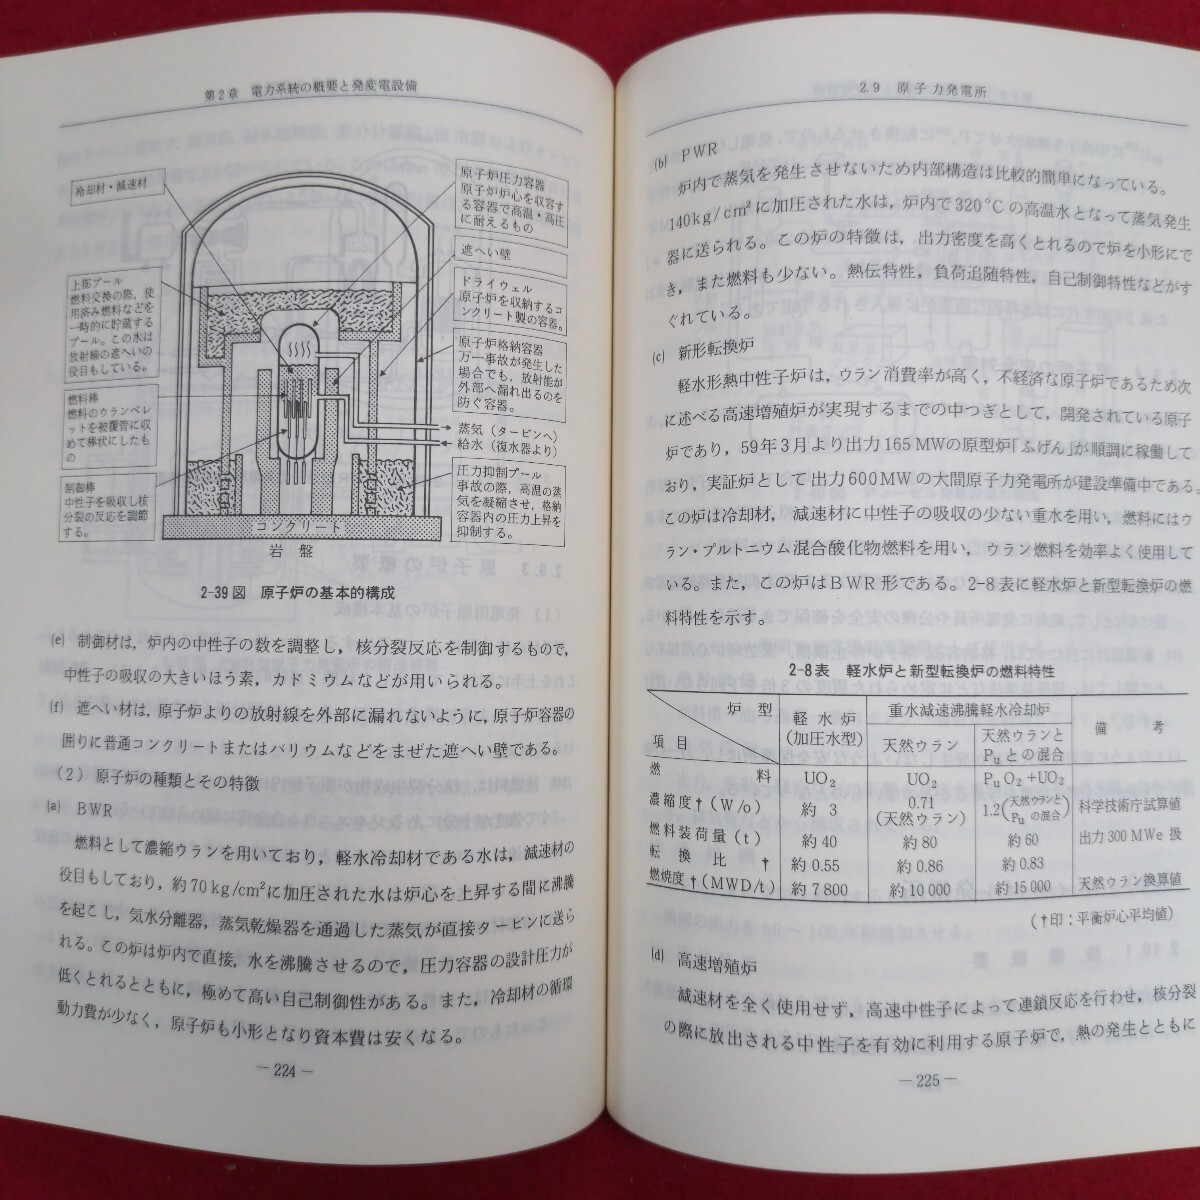 第2章 電力系統の概要と発変電設備
冷却材・減速材
上部プール
燃料交換の際、使
用済み燃料などを
一時的に貯蔵する
プール。この水は
放射線の遮へいの
役目もしている。
燃料棒
燃料のウランペレ
ットを被覆管に収
めて棒状にしたも
の
制御棒
中性子を吸収し核
分裂の反応を調節
する。
原子炉圧力容器
原子炉炉心を収容す
る容器で高温・高圧
に耐えるもの
遮へい壁
ドライウェル
原子炉を収納するコ
ンクリート製の容器。
原子炉格納容器
万一事故が発生した
場合でも、放射能が
外部へ漏れ出るのを
防ぐ容器。
蒸気(タービンへ)
給水(復水器より)
圧力抑制プール
事故の際、高温の蒸
気を凝縮させ、格納
容器内の圧力上昇を
抑制する。
コンクリート
岩盤
2-39図 原子炉の基本的構成
(e) 制御材は，炉内の中性子の数を調整し，核分裂反応を制御するもので，
中性子の吸収の大きいほう素，カドミウムなどが用いられる。
(f) 遮へい材は，原子炉よりの放射線を外部に漏れないように，原子炉容器の
囲りに普通コンクリートまたはバリウムなどをまぜた遮へい壁である。
(2) 原子炉の種類とその特徴
(a) BWR
燃料として濃縮ウランを用いており，軽水冷却材である水は，減速材の
役目もしており，約70kg/cm²に加圧された水は炉心を上昇する間に沸騰
を起こし，気水分離器，蒸気乾燥器を通過した蒸気が直接タービンに送ら
れる。この炉は炉内で直接，水を沸騰させるので，圧力容器の設計圧力が
低くとれるとともに，極めて高い自己制御性がある。また，冷却材の循環
動力費が少なく，原子炉も小形となり資本費は安くなる。
—224—
2.9 原子力発電所
(b) PWR
炉内で蒸気を発生させないため内部構造は比較的簡単になっている。
140kg/cm²に加圧された水は，炉内で320°Cの高温水となって蒸気発生
器に送られる。この炉の特徴は，出力密度を高くとれるので炉を小形にで
き，また燃料も少ない。熱伝特性，負荷追随特性，自己制御特性などがす
ぐれている。
(c) 新形転換炉
軽水形熱中性子炉は，ウラン消費率が高く，不経済な原子炉であるため次
に述べる高速増殖炉が実現するまでの中つぎとして，開発されている原子
炉であり，59年3月より出力165MWの原型炉「ふげん」が順調に稼働して
おり，実証炉として出力600MWの大間原子力発電所が建設準備中である。
この炉は冷却材，減速材に中性子の吸収の少ない重水を用い，燃料にはウ
ラン・プルトニウム混合酸化物燃料を用い，ウラン燃料を効率よく使用して
いる。また，この炉はBWR形である。2-8表に軽水炉と新型転換炉の燃
料特性を示す。
2-8表 軽水炉と新型転換炉の燃料特性
炉型 項目 軽水炉(加圧水型) 重水減速沸騰軽水冷却炉 備考
天然ウラン 天然ウランとPuとの混合
燃料 UO₂ UO₂ PuO₂+UO₂
濃縮度†(W/o) 約3 0.71(天然ウラン) 1.2(天然ウランとPuの混合) 科学技術庁試算値
燃料装荷量(t) 約40 約80 約60 出力300MWe級
転換比† 約0.55 約0.86 約0.83
燃焼度†(MWD/t) 約7800 約10000 約15000 天然ウラン換算値
(†印：平衡炉心平均値)
(d) 高速増殖炉
減速材を全く使用せず，高速中性子によって連鎖反応を行わせ，核分裂
の際に放出される中性子を有効に利用する原子炉で，熱の発生とともに
—225—